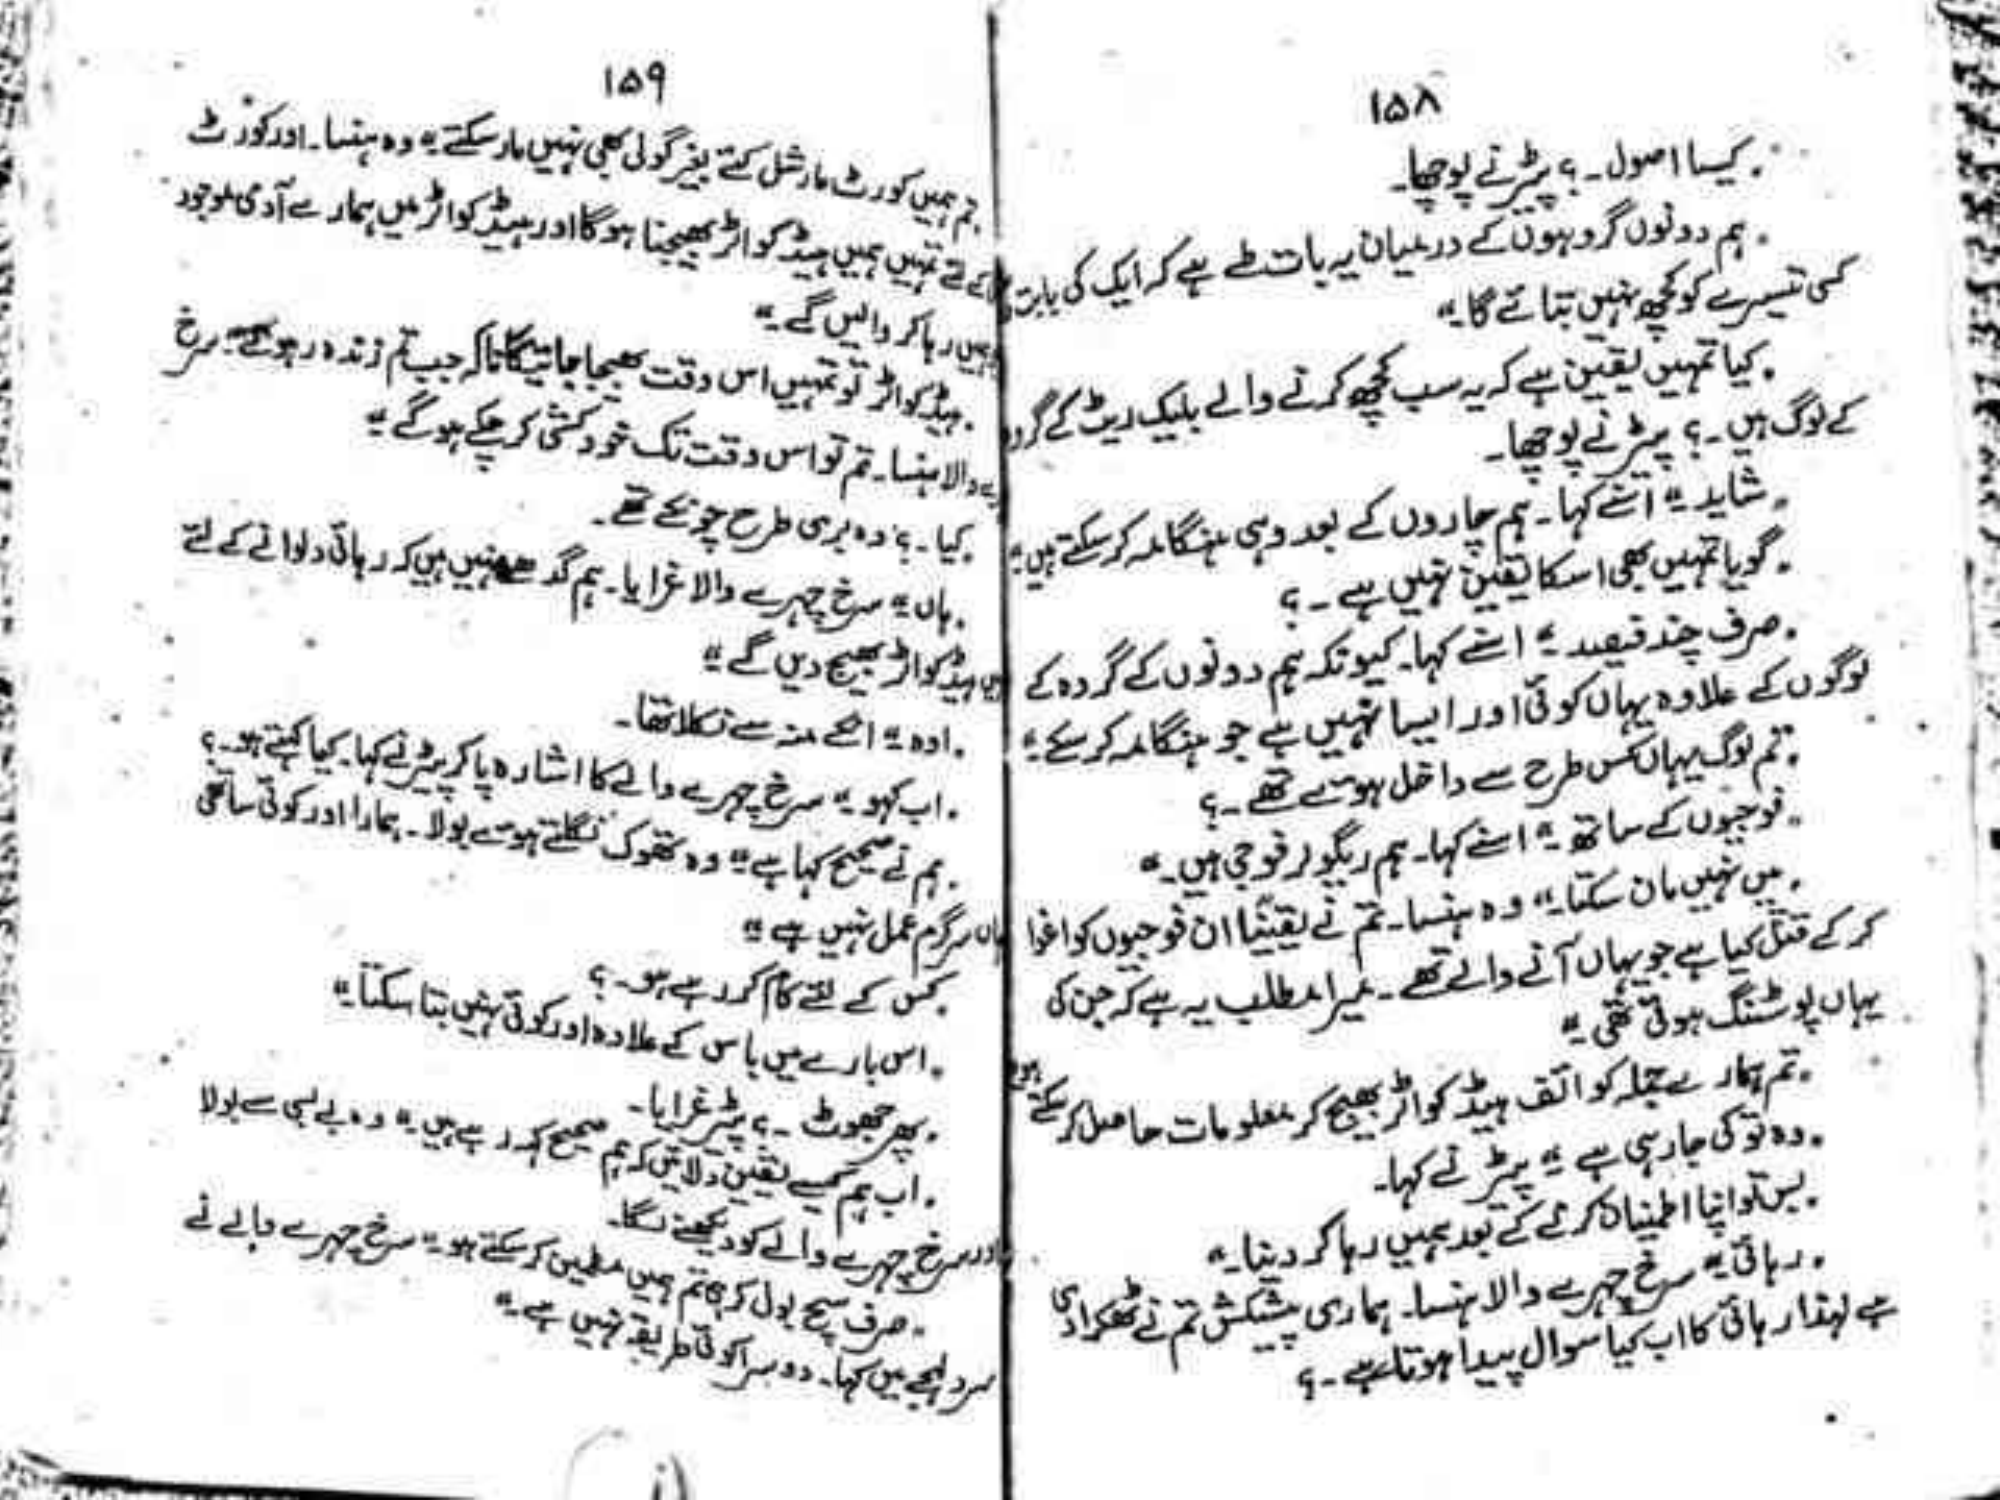 ۱۵۸
. کیسا اصول ۔ ؟ پیٹر نے پوچھا۔
. ہم دونوں گروہوں کے درمیان یہ بات طے ہے کہ ایک کی بابت
کسی تیسرے کو کچھ نہیں بتائے گا۔"
. کیا تمہیں یقین ہے کہ یہ سب کچھ کرنے والے بلیک ریٹ کے گروہ
کے لوگ ہیں ۔ ؟ پیٹر نے پوچھا۔
. شاید ۔" اسنے کہا۔ ہم چاروں کے بعد وہی ہنگامہ کر سکتے ہیں۔"
. گویا تمہیں بھی اسکا یقین نہیں ہے ۔ ؟
. صرف چند فیصد ۔" اسنے کہا۔ کیونکہ ہم دونوں کے گروہ کے
لوگوں کے علاوہ یہاں کوئی اور ایسا نہیں ہے جو ہنگامہ کر سکے۔"
. تم لوگ یہاں کس طرح سے داخل ہوئے تھے ۔ ؟
. فوجیوں کے ساتھ ۔" اسنے کہا۔ ہم ریگولر فوجی ہیں۔"
. میں نہیں مان سکتا۔" وہ ہنسا۔ تم نے یقیناً ان فوجیوں کو اغوا
کر کے قتل کیا ہے جو یہاں آنے والے تھے ۔ میرا مطلب یہ ہے کہ جن کی
یہاں پوسٹنگ ہوئی تھی ۔"
. تم ہمارے جملہ کوائف ہیڈ کوارٹر بھیج کر معلومات حاصل کر سکتے ہو۔
. وہ تو کی جا رہی ہے ۔" پیٹر نے کہا۔
. بس تو اپنا اطمینان کرنے کے بعد ہمیں رہا کر دینا۔"
. رہائی ۔" سرخ چہرے والا ہنسا۔ ہماری پیشکش تم نے ٹھکرا دی
ہے لہٰذا رہائی کا اب کیا سوال پیدا ہوتا ہے ۔ ؟
۱۵۹
. تم ہمیں کورٹ مارشل کئے بغیر گولی بھی نہیں مار سکتے ۔" وہ ہنسا۔ اور کورٹ
کے لئے تمہیں ہمیں ہیڈ کوارٹر بھیجنا ہو گا اور ہیڈ کوارٹر میں ہمارے آدمی موجود
ہمیں رہا کر والیں گے ۔"
. ہیڈ کوارٹر تو تمہیں اس وقت بھیجا جائیگا تاکہ جب تم زندہ رہو گے۔" سرخ
والا ہنسا۔ تم تو اس وقت تک خودکشی کر چکے ہو گے ۔"
. کیا ۔ ؟ وہ بری طرح چونکے تھے۔
. ہاں ۔" سرخ چہرے والا غرایا۔ ہم گدھے نہیں ہیں کہ رہائی دلوانے کے لئے
ہیڈ کوارٹر بھیج دیں گے ۔"
. اوہ ۔" اسکے منہ سے نکلا تھا۔
. اب کہو ۔" سرخ چہرے والے کا اشارہ پا کر پیٹر نے کہا۔ کیا کہتے ہو۔ ؟
. ہم نے صحیح کہا ہے ۔" وہ تھوک نگلتے ہوئے بولا ۔ ہمارا اور کوئی ساتھی
یہاں سرگرم عمل نہیں ہے ۔"
. کس کے لئے کام کر رہے ہو۔ ؟
. اس بارے میں باس کے علاوہ اور کوئی نہیں بتا سکتا۔"
. پھر جھوٹ ۔ ؟ پیٹر غرایا۔
. اب ہم کیسے یقین دلائیں کہ ہم صحیح کہہ رہے ہیں ۔" وہ بے بسی سے بولا
اور سرخ چہرے والے کو دیکھنے لگا۔
. صرف سچ بول کر ہی تم ہمیں مطمئن کر سکتے ہو۔" سرخ چہرے والے نے
سرد لہجے میں کہا۔ دوسرا کوئی طریقہ نہیں ہے ۔"